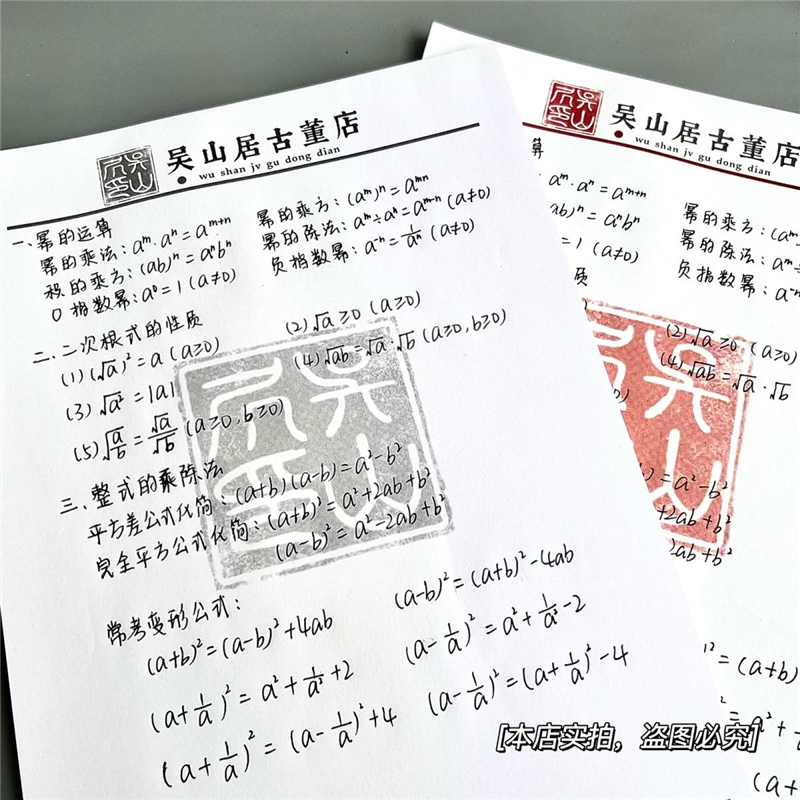 吴山居古董店
wu shan jv gu dong dian
一、幂的运算
幂的乘法：aᵐ·aⁿ=aᵐ⁺ⁿ 幂的乘方：(aᵐ)ⁿ=aᵐⁿ
积的乘方：(ab)ⁿ=aⁿbⁿ 幂的除法：aᵐ÷aⁿ=aᵐ⁻ⁿ (a≠0)
0指数幂：a⁰=1 (a≠0) 负指数幂：a⁻ⁿ=1/aⁿ (a≠0)
二、二次根式的性质
(1) (√a)²=a (a≥0) (2) √a≥0 (a≥0)
(3) √a²=|a| (4) √ab=√a·√b (a≥0,b≥0)
(5) √a/b=√a/√b (a≥0,b≥0)
三、整式的乘除法
平方差公式化简：(a+b)(a-b)=a²-b²
完全平方公式化简：(a+b)²=a²+2ab+b²
(a-b)²=a²-2ab+b²
常考变形公式：
(a+b)²=(a-b)²+4ab (a-b)²=(a+b)²-4ab
(a+1/a)²=a²+1/a²+2 (a-1/a)²=a²+1/a²-2
(a+1/a)²=(a-1/a)²+4 (a-1/a)²=(a+1/a)²-4
吴山居古董店
wu shan jv gu dong dian
算
aᵐ·aⁿ=aᵐ⁺ⁿ 幂的乘方：(aᵐ
ab)ⁿ=aⁿbⁿ 幂的除法：aᵐ
=1 (a≠0) 负指数幂：a⁻ⁿ
质
(2) √a≥0 (a≥0)
(4) √ab=√a·√b
)=a²-b²
+2ab+b²
2ab+b²
)²=(a+b)
[本店实拍，盗图必究]